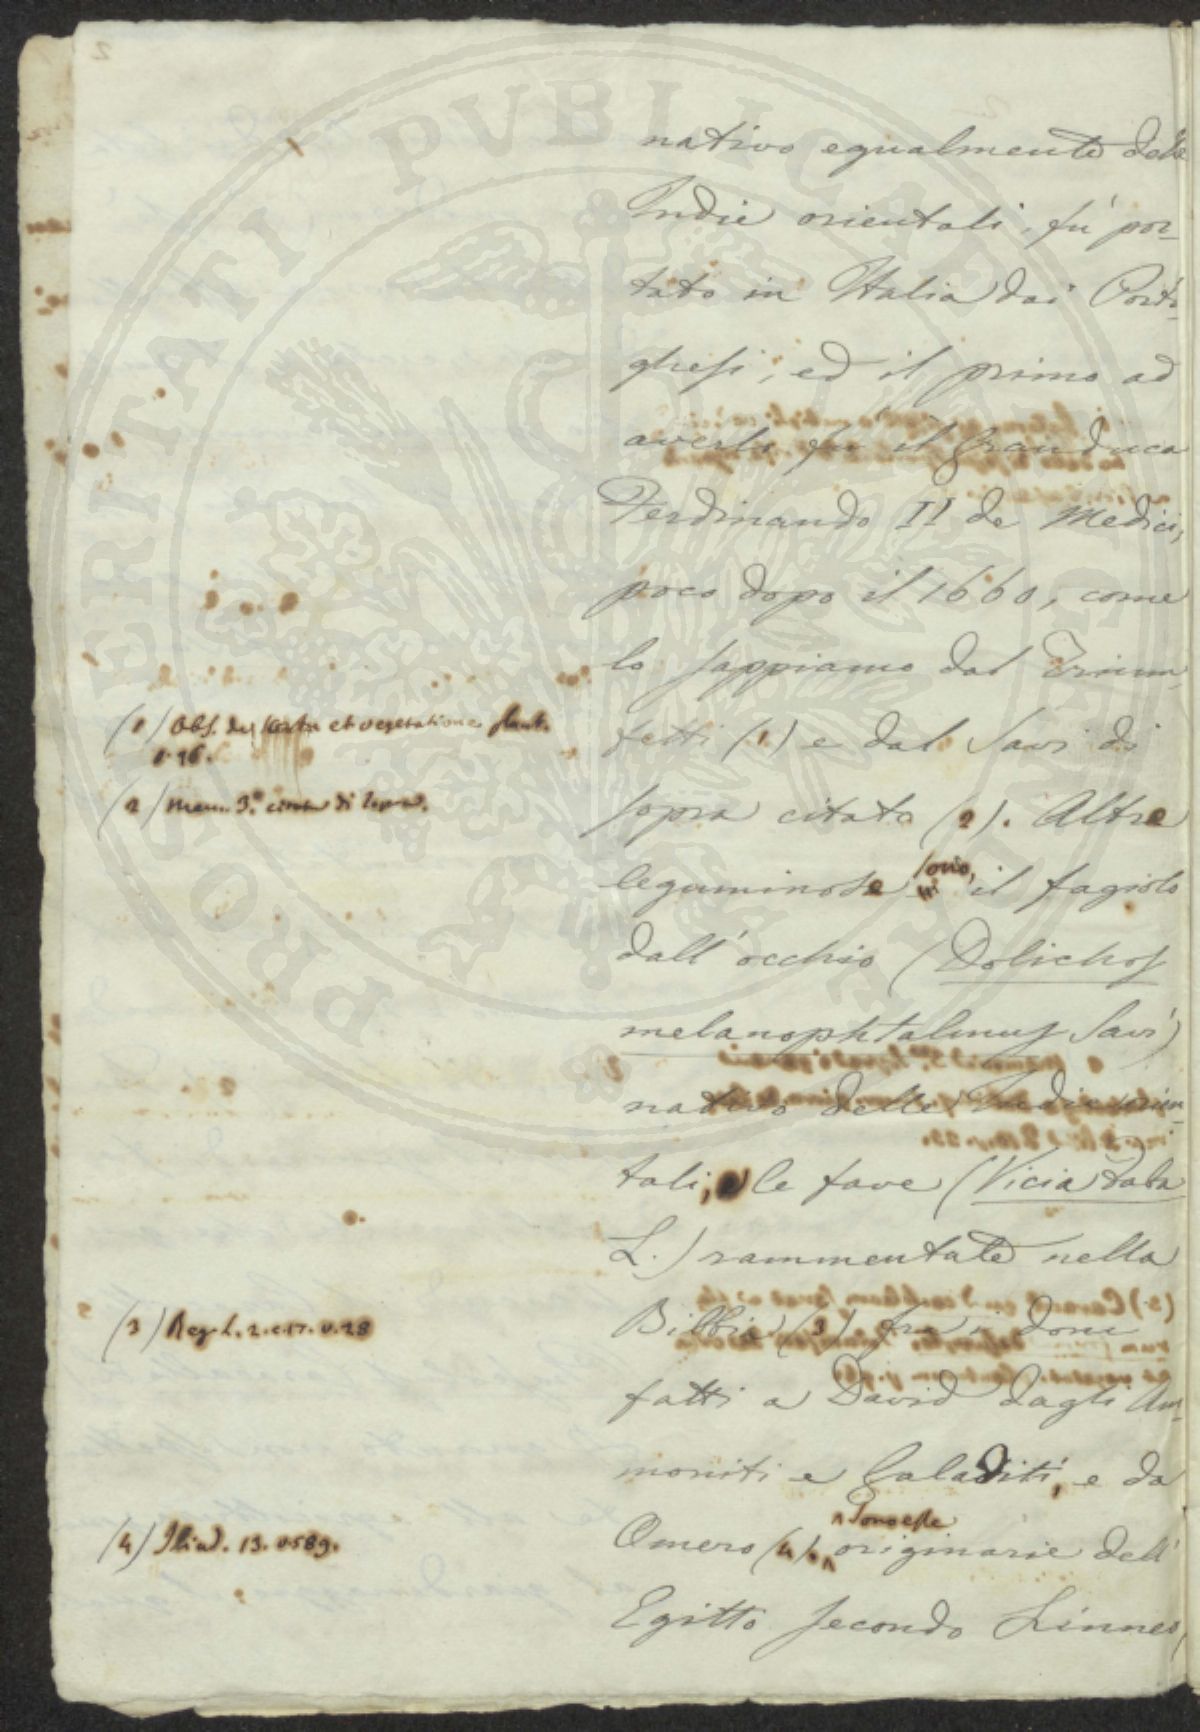 nativo egualmente delle
Indie orientali, fù por-
tato in Italia dai Porto-
ghesi, ed il primo ad
averlo fu il Granduca
Ferdinando II de Medici,
poco dopo il 1660, come
lo sappiamo dal Trium-
fetti (1) e dal Savi di
sopra citato (2). Altre
leguminose sono, il fagiolo
dall'occhio (Dolichos
melanophtalmus Savi)
nativo delle Indie orien-
tali, le fave (Vicia Faba
L.) rammentate nella
Bibbia (3) fra i doni
fatti a David dagli Am-
moniti e Galaditi, e da
Omero (4). Sono esse originarie dell'
Egitto secondo Linneo,
(1) Obs. de ortu et vegetatione plant.
p. 96.
(2) Mem. 3.a citata di sopra.
(3) Reg. L. 2. c. 17. v. 28
(4) Iliad. 13. v. 589.
PROSPERITATI PVBLICAE